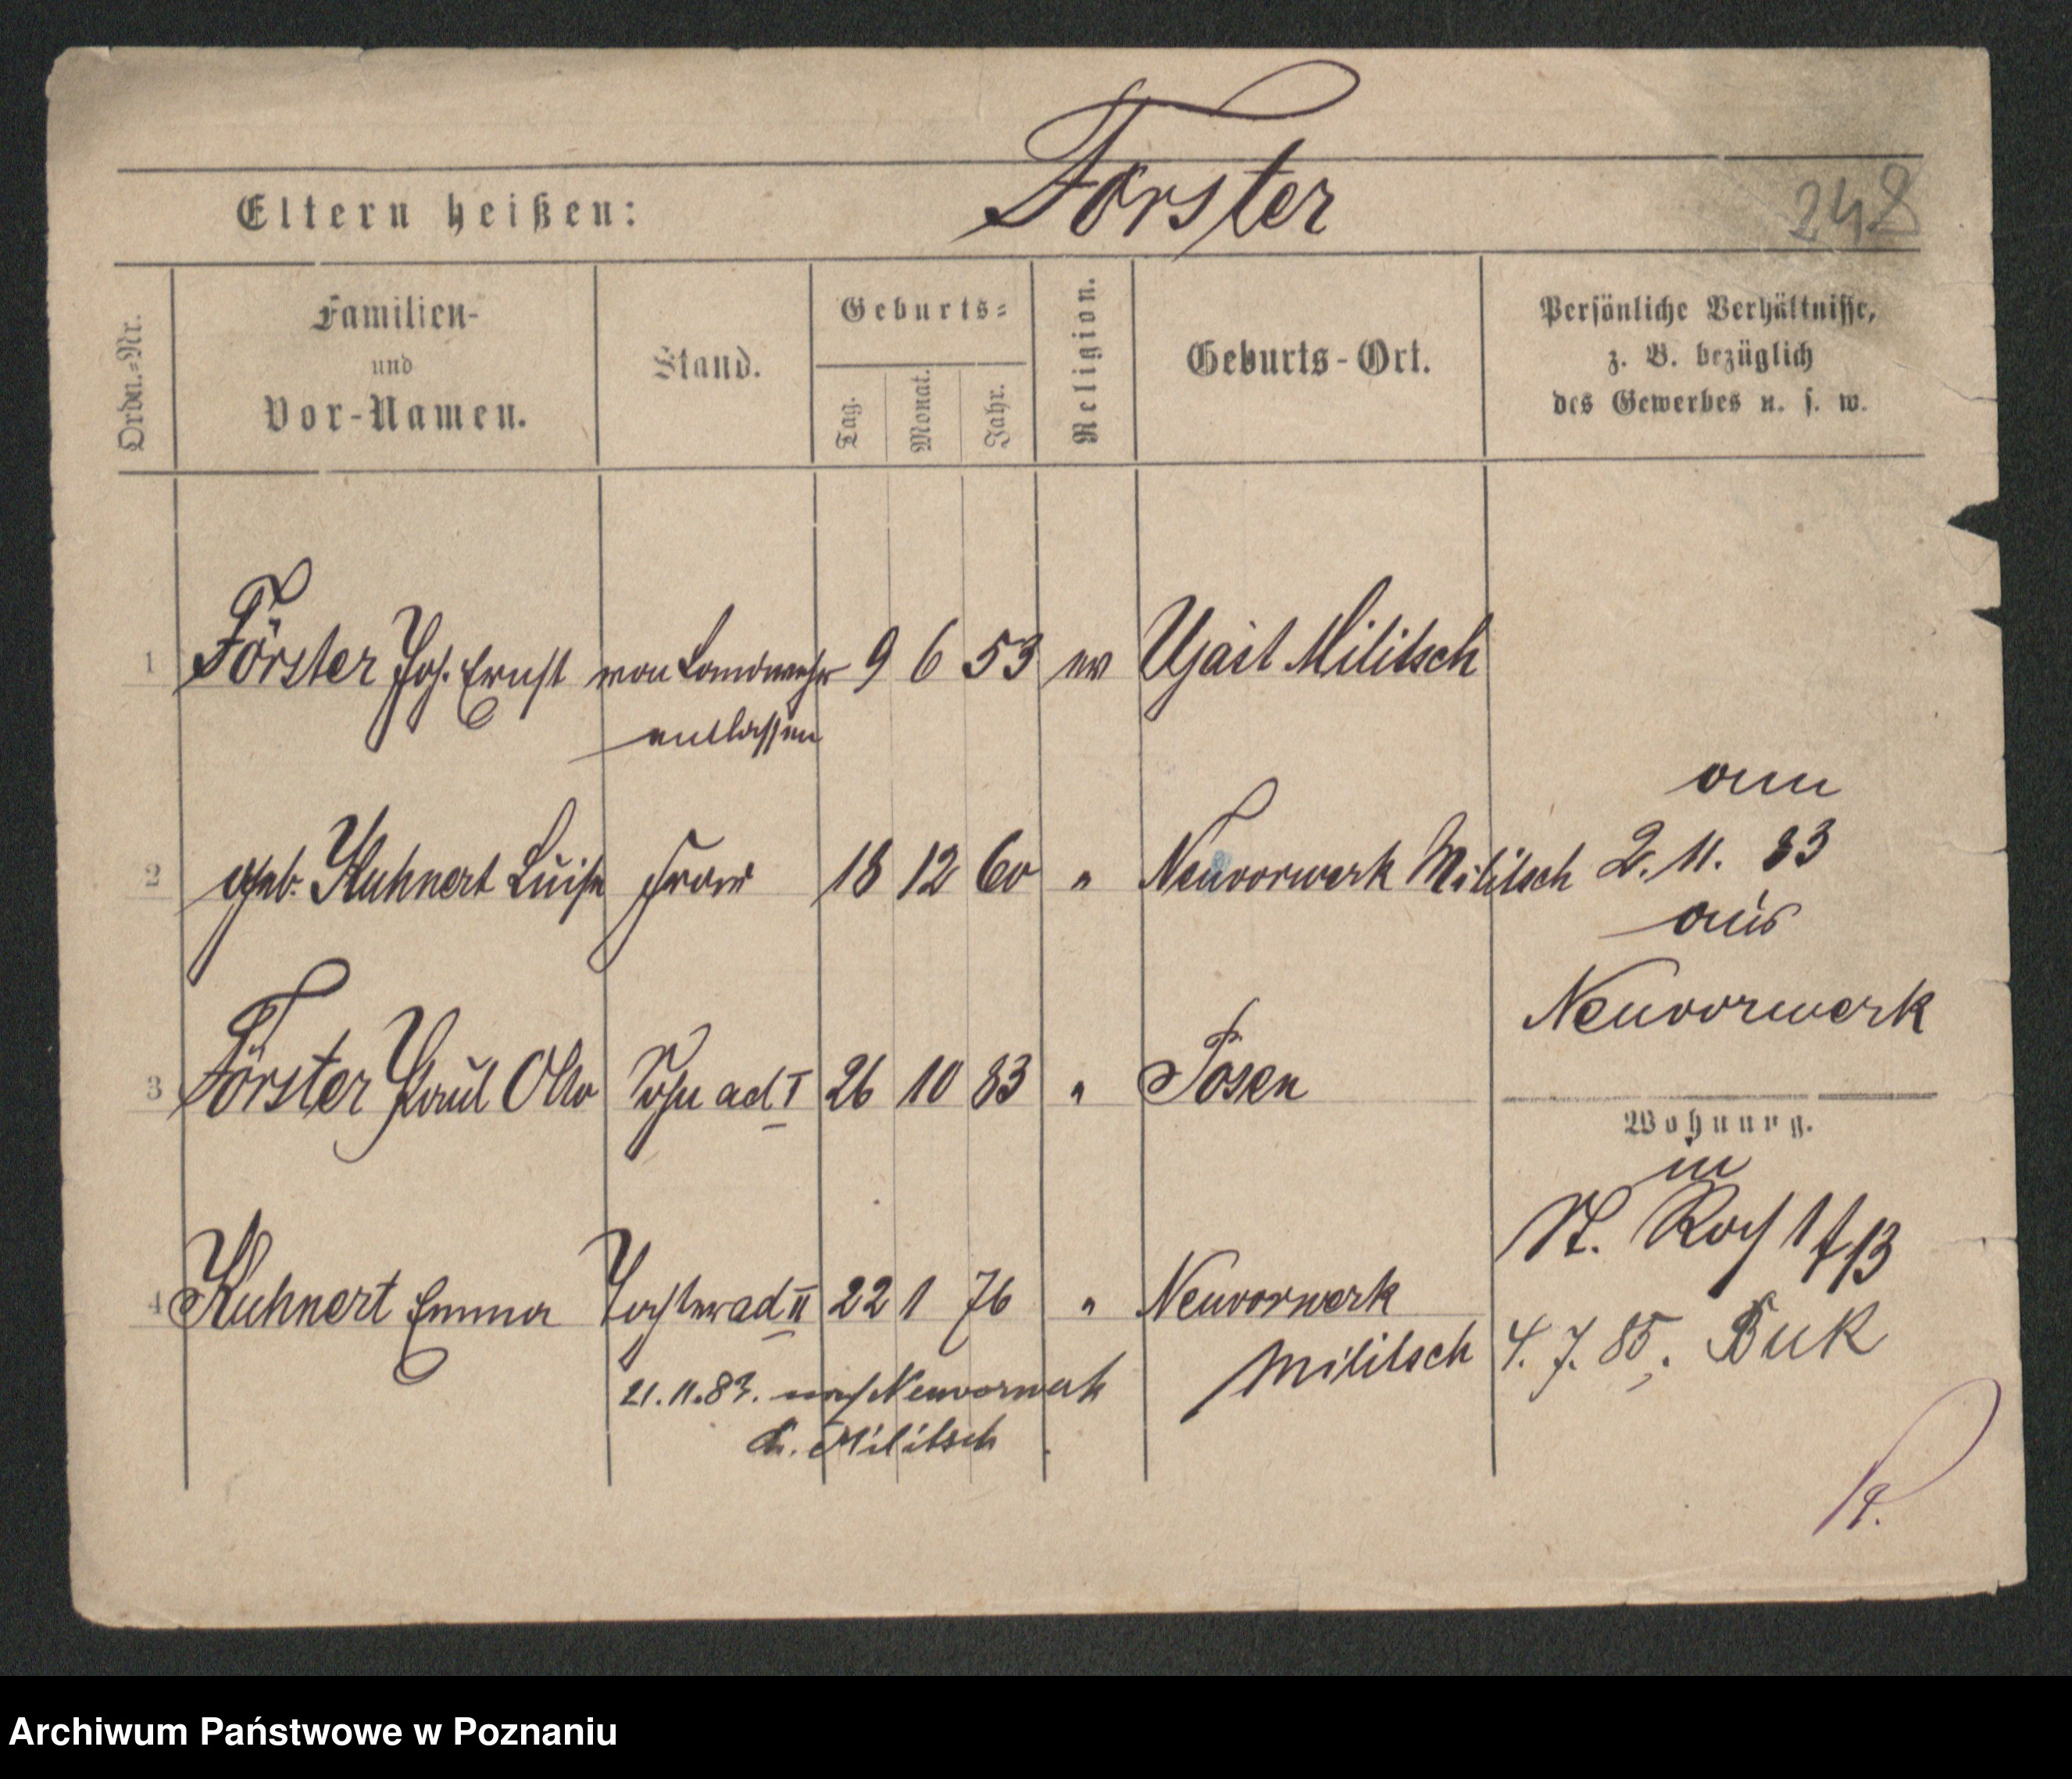 Förster
Eltern heißen:
248
Ordn.=Nr.
Familien-
und
Vor-Namen.
Stand.
Geburts=
Tag.
Monat.
Jahr.
Religion.
Geburts-Ort.
Persönliche Verhältnisse,
z. B. bezüglich
des Gewerbes u. s. w.
1 Förster Joh. Ernst von Landwehr 9 6 53 ev Ujast Militsch
entlassen
am
2 geb. Kuhnert Luise Frau 18 12 60 " Neuvorwerk Militsch 2. 11. 83
aus
Neuvorwerk
3 Förster Paul Otto Sohn ad I 26 10 83 " Posen
Wohnung.
in
St. Roch 1/13
4 Kuhnert Emma Tochter ad II 22 1 76 " Neuvorwerk
Militsch
4. 7. 85, Buk
21.11.83. nach Neuvorwerk
Militsch
Archiwum Państwowe w Poznaniu